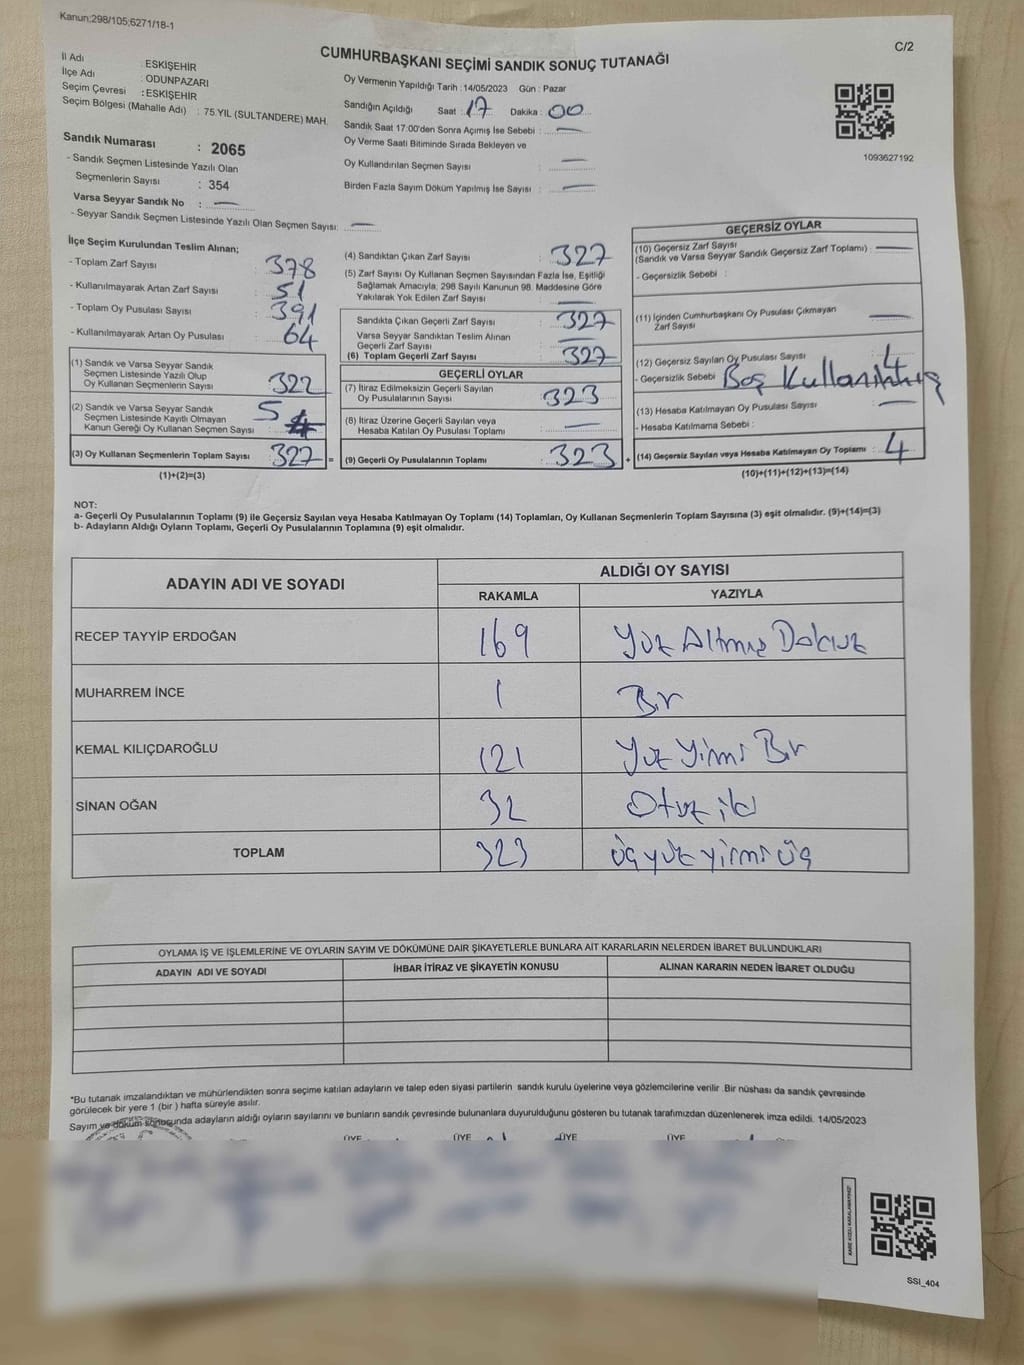 Kanun;298/105;6271/18-1
C/2
CUMHURBAŞKANI SEÇİMİ SANDIK SONUÇ TUTANAĞI
İl Adı : ESKİŞEHİR
İlçe Adı : ODUNPAZARI
Seçim Çevresi : ESKİŞEHİR
Seçim Bölgesi (Mahalle Adı) : 75.YIL (SULTANDERE) MAH.
Sandık Numarası : 2065
- Sandık Seçmen Listesinde Yazılı Olan
Seçmenlerin Sayısı : 354
Varsa Seyyar Sandık No : —
- Seyyar Sandık Seçmen Listesinde Yazılı Olan Seçmen Sayısı: —
Oy Vermenin Yapıldığı Tarih : 14/05/2023 Gün : Pazar
Sandığın Açıldığı Saat : 17 Dakika : 00
Sandık Saat 17:00'den Sonra Açımış İse Sebebi : —
Oy Verme Saati Bitiminde Sırada Bekleyen ve
Oy Kullandırılan Seçmen Sayısı —
Birden Fazla Sayım Döküm Yapılmış İse Sayısı : —
1093627192
İlçe Seçim Kurulundan Teslim Alınan;
- Toplam Zarf Sayısı : 378
- Kullanılmayarak Artan Zarf Sayısı : 51
- Toplam Oy Pusulası Sayısı : 391
- Kullanılmayarak Artan Oy Pusulası : 64
(1) Sandık ve Varsa Seyyar Sandık
Seçmen Listesinde Yazılı Olup
Oy Kullanan Seçmenlerin Sayısı : 322
(2) Sandık ve Varsa Seyyar Sandık
Seçmen Listesinde Kayıtlı Olmayan
Kanun Gereği Oy Kullanan Seçmen Sayısı : 5
(3) Oy Kullanan Seçmenlerin Toplam Sayısı : 327 =
(1)+(2)=(3)
(4) Sandıktan Çıkan Zarf Sayısı : 327
(5) Zarf Sayısı Oy Kullanan Seçmen Sayısından Fazla İse, Eşitliği
Sağlamak Amacıyla; 298 Sayılı Kanunun 98. Maddesine Göre
Yakılarak Yok Edilen Zarf Sayısı : —
Sandıkta Çıkan Geçerli Zarf Sayısı : 327
Varsa Seyyar Sandıktan Teslim Alınan
Geçerli Zarf Sayısı : —
(6) Toplam Geçerli Zarf Sayısı : 327
GEÇERLİ OYLAR
(7) İtiraz Edilmeksizin Geçerli Sayılan
Oy Pusulalarının Sayısı : 323
(8) İtiraz Üzerine Geçerli Sayılan veya
Hesaba Katılan Oy Pusulası Toplamı : —
(9) Geçerli Oy Pusulalarının Toplamı : 323 +
GEÇERSİZ OYLAR
(10) Geçersiz Zarf Sayısı : —
(Sandık ve Varsa Seyyar Sandık Geçersiz Zarf Toplamı)
- Geçersizlik Sebebi :
(11) İçinden Cumhurbaşkanı Oy Pusulası Çıkmayan
Zarf Sayısı : —
(12) Geçersiz Sayılan Oy Pusulası Sayısı : 4
- Geçersizlik Sebebi : Boş Kullanılmış
(13) Hesaba Katılmayan Oy Pusulası Sayısı : —
- Hesaba Katılmama Sebebi :
(14) Geçersiz Sayılan veya Hesaba Katılmayan Oy Toplamı : 4
(10)+(11)+(12)+(13)=(14)
NOT:
a- Geçerli Oy Pusulalarının Toplamı (9) ile Geçersiz Sayılan veya Hesaba Katılmayan Oy Toplamı (14) Toplamları, Oy Kullanan Seçmenlerin Toplam Sayısına (3) eşit olmalıdır. (9)+(14)=(3)
b- Adayların Aldığı Oyların Toplamı, Geçerli Oy Pusulalarının Toplamına (9) eşit olmalıdır.
ADAYIN ADI VE SOYADI
ALDIĞI OY SAYISI
RAKAMLA YAZIYLA
RECEP TAYYİP ERDOĞAN 169 Yüz Altmış Dokuz
MUHARREM İNCE 1 Bir
KEMAL KILIÇDAROĞLU 121 Yüz Yirmi Bir
SİNAN OĞAN 32 Otuz iki
TOPLAM 323 üçyüz yirmi üç
OYLAMA İŞ VE İŞLEMLERİNE VE OYLARIN SAYIM VE DÖKÜMÜNE DAİR ŞİKAYETLERLE BUNLARA AİT KARARLARIN NELERDEN İBARET BULUNDUKLARI
ADAYIN ADI VE SOYADI İHBAR İTİRAZ VE ŞİKAYETİN KONUSU ALINAN KARARIN NEDEN İBARET OLDUĞU
*Bu tutanak imzalandıktan ve mühürlendikten sonra seçime katılan adayların ve talep eden siyasi partilerin sandık kurulu üyelerine veya gözlemcilerine verilir .Bir nüshası da sandık çevresinde
görülecek bir yere 1 (bir ) hafta süreyle asılır.
Sayım ve döküm sonucunda adayların aldığı oyların sayılarını ve bunların sandık çevresinde bulunanlara duyurulduğunu gösteren bu tutanak tarafımızdan düzenlenerek imza edildi. 14/05/2023
ÜYE ÜYE ÜYE ÜYE
KARE KODU KARALAMAYINIZ!
SSI_404